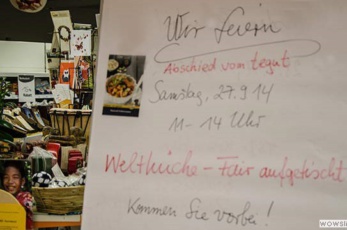 Wir feiern
Abschied vom tegut
Samstag, 27.9.14
11-14 Uhr
Weltküche - Fair aufgetischt
Kommen Sie vorbei!